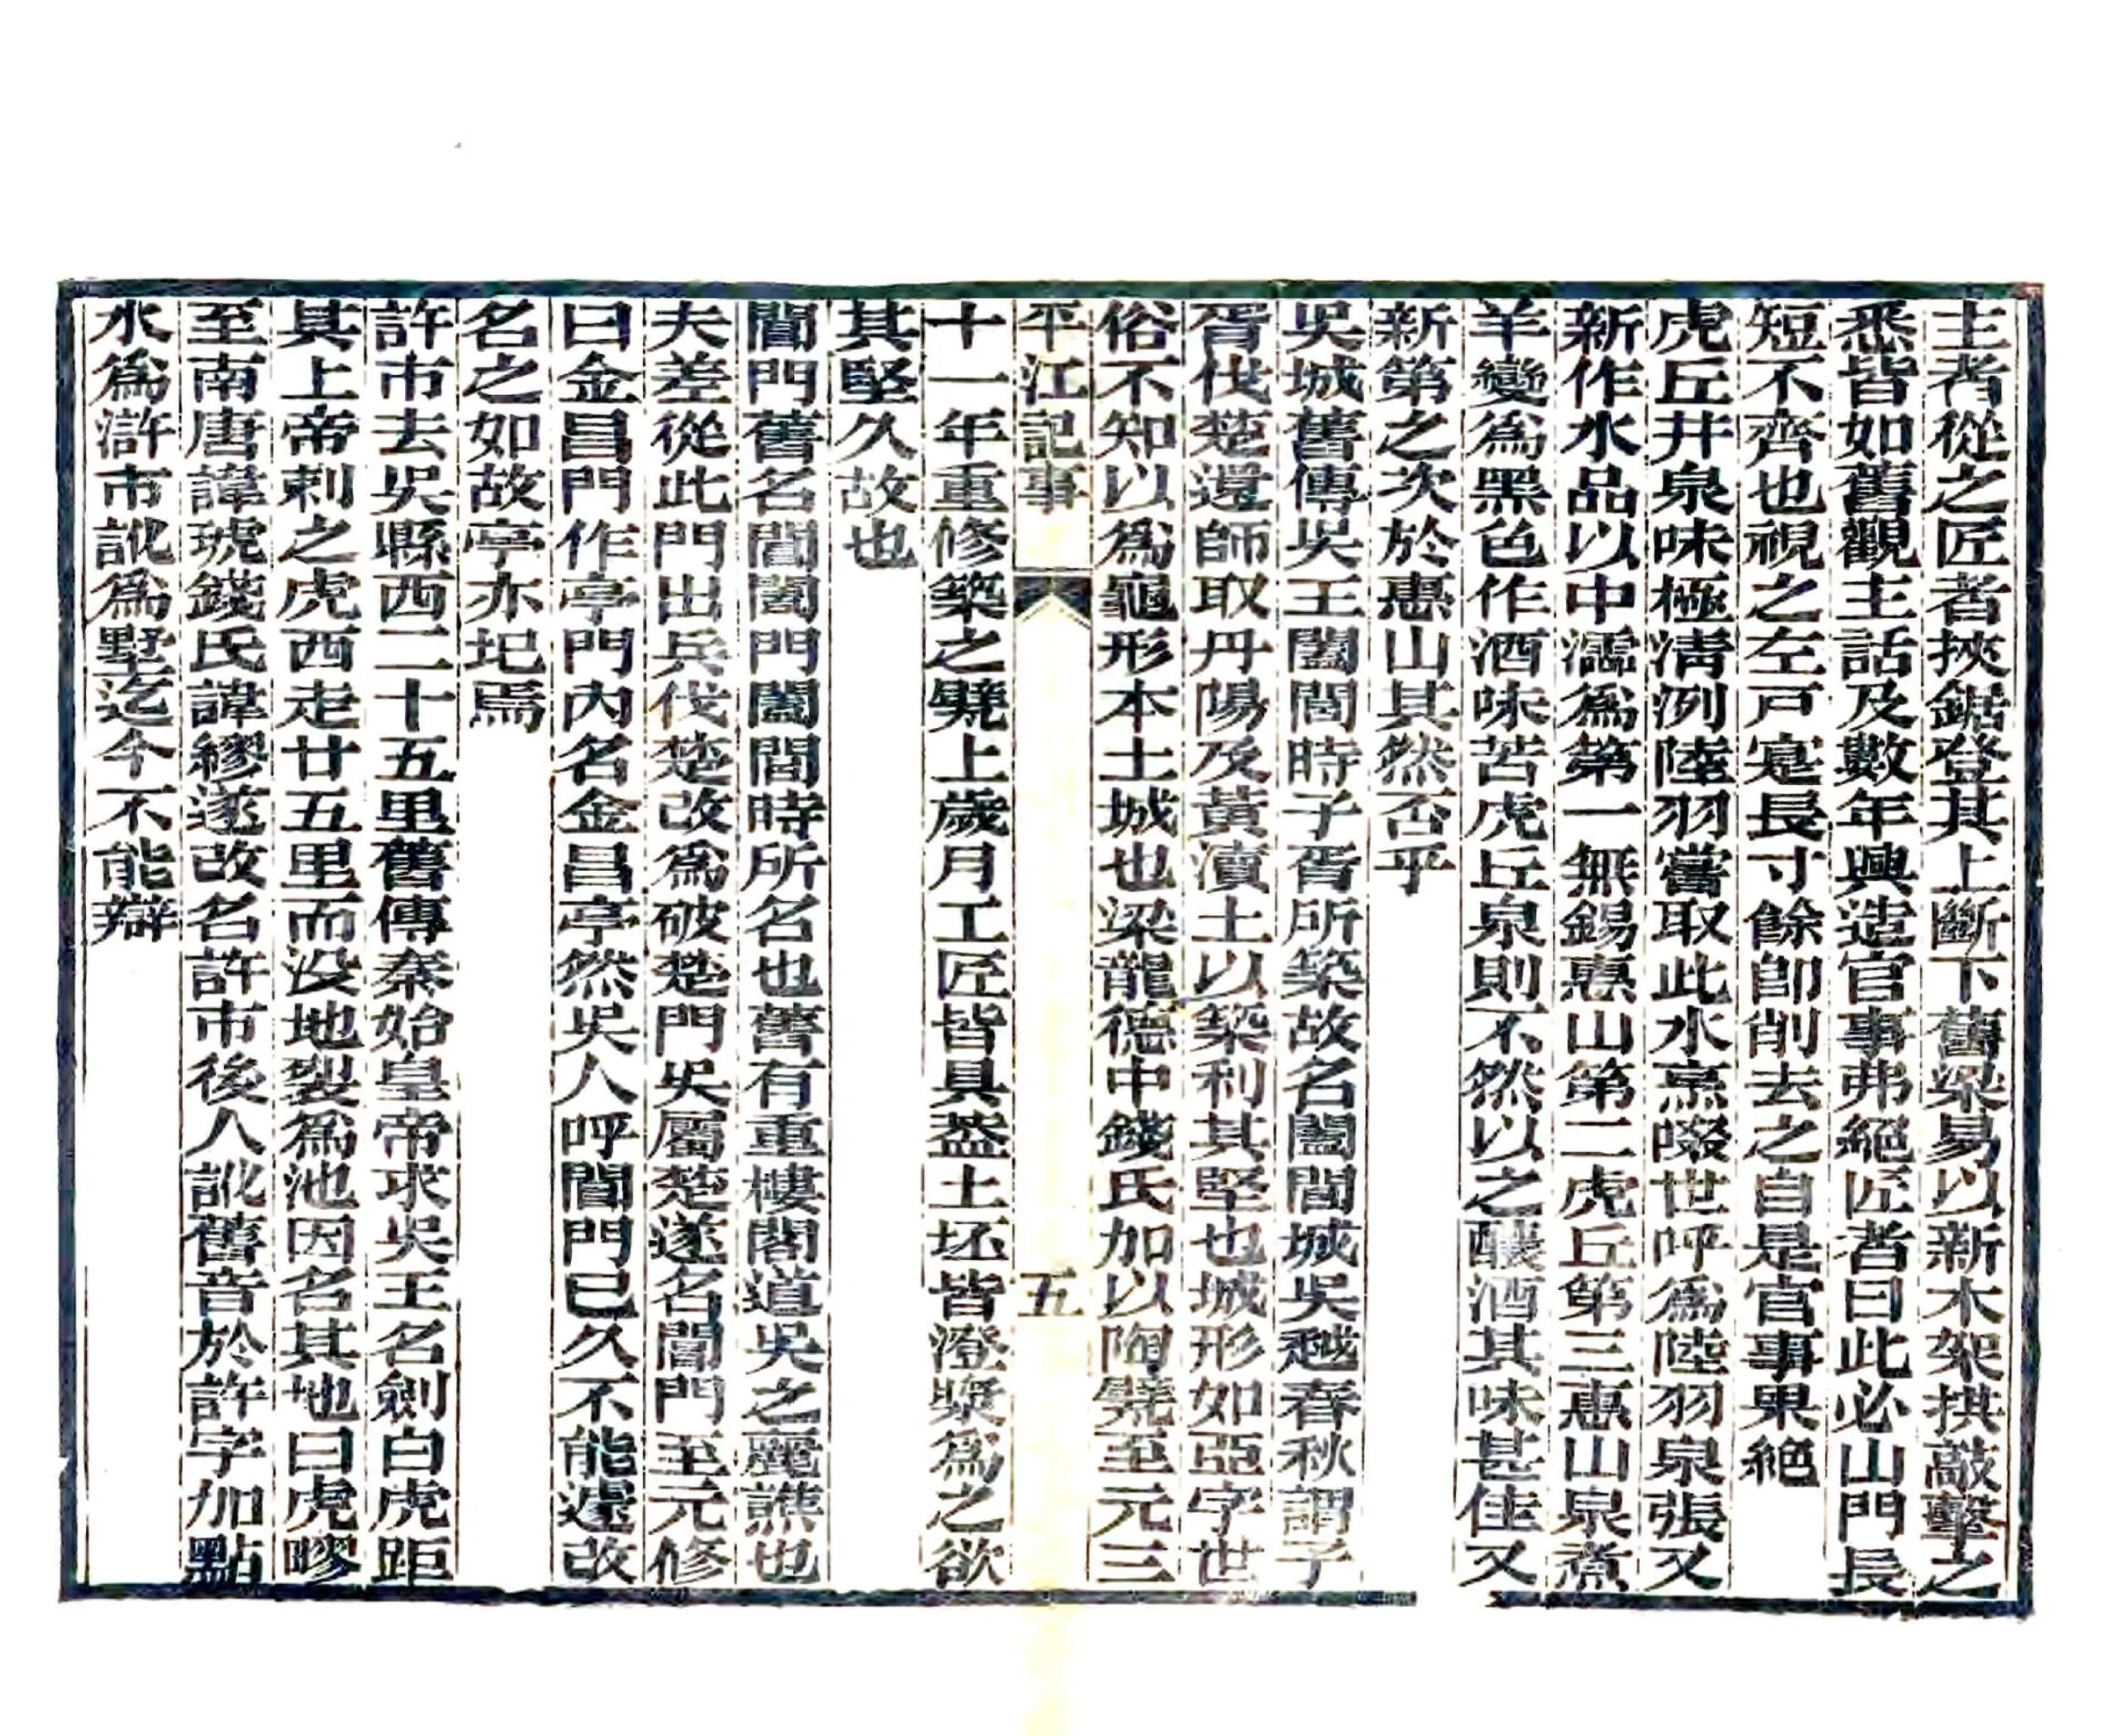 主者從之匠者挾鋸登其上斷下舊梁易以新木架拱敲擊之
悉皆如舊觀主話及數年興造官事弗絕匠者曰此必山門長
短不齊也視之左戸寔長寸餘卽削去之自是官事果絕
虎丘井泉味極清冽陸羽嘗取此水烹啜世呼爲陸羽泉張又
新作水品以中濡爲第一無錫惠山第二虎丘第三惠山泉煮
羊變爲黑色作酒味苦虎丘泉則不然以之釀酒其味甚佳又
新第之次於惠山其然否乎
吳城舊傳吳王闔閭時子胥所築故名闔閭城吳越春秋謂子
胥伐楚還師取丹陽及黃瀆土以築利其堅也城形如亞字世
俗不知以爲龜形本土城也梁龍德中錢氏加以陶甓至元三
平江記事 五
十一年重修築之甓上歲月工匠皆具葢土坯皆澄漿爲之欲
其堅久故也
閶門舊名閶闔門闔閭時所名也舊有重樓閣道吳之麗譙也
夫差從此門出兵伐楚改爲破楚門吳屬楚遂名閶門至元修
曰金昌門作亭門內名金昌亭然吳人呼閶門已久不能遽改
名之如故亭亦圮焉
許市去吳縣西二十五里舊傳秦始皇帝求吳王名劍白虎踞
其上帝刺之虎西走廿五里而没地裂爲池因名其地曰虎疁
至南唐諱琥錢氏諱繆遂改名許市後人訛舊音於許字加點
水爲滸市訛爲墅迄今不能辯